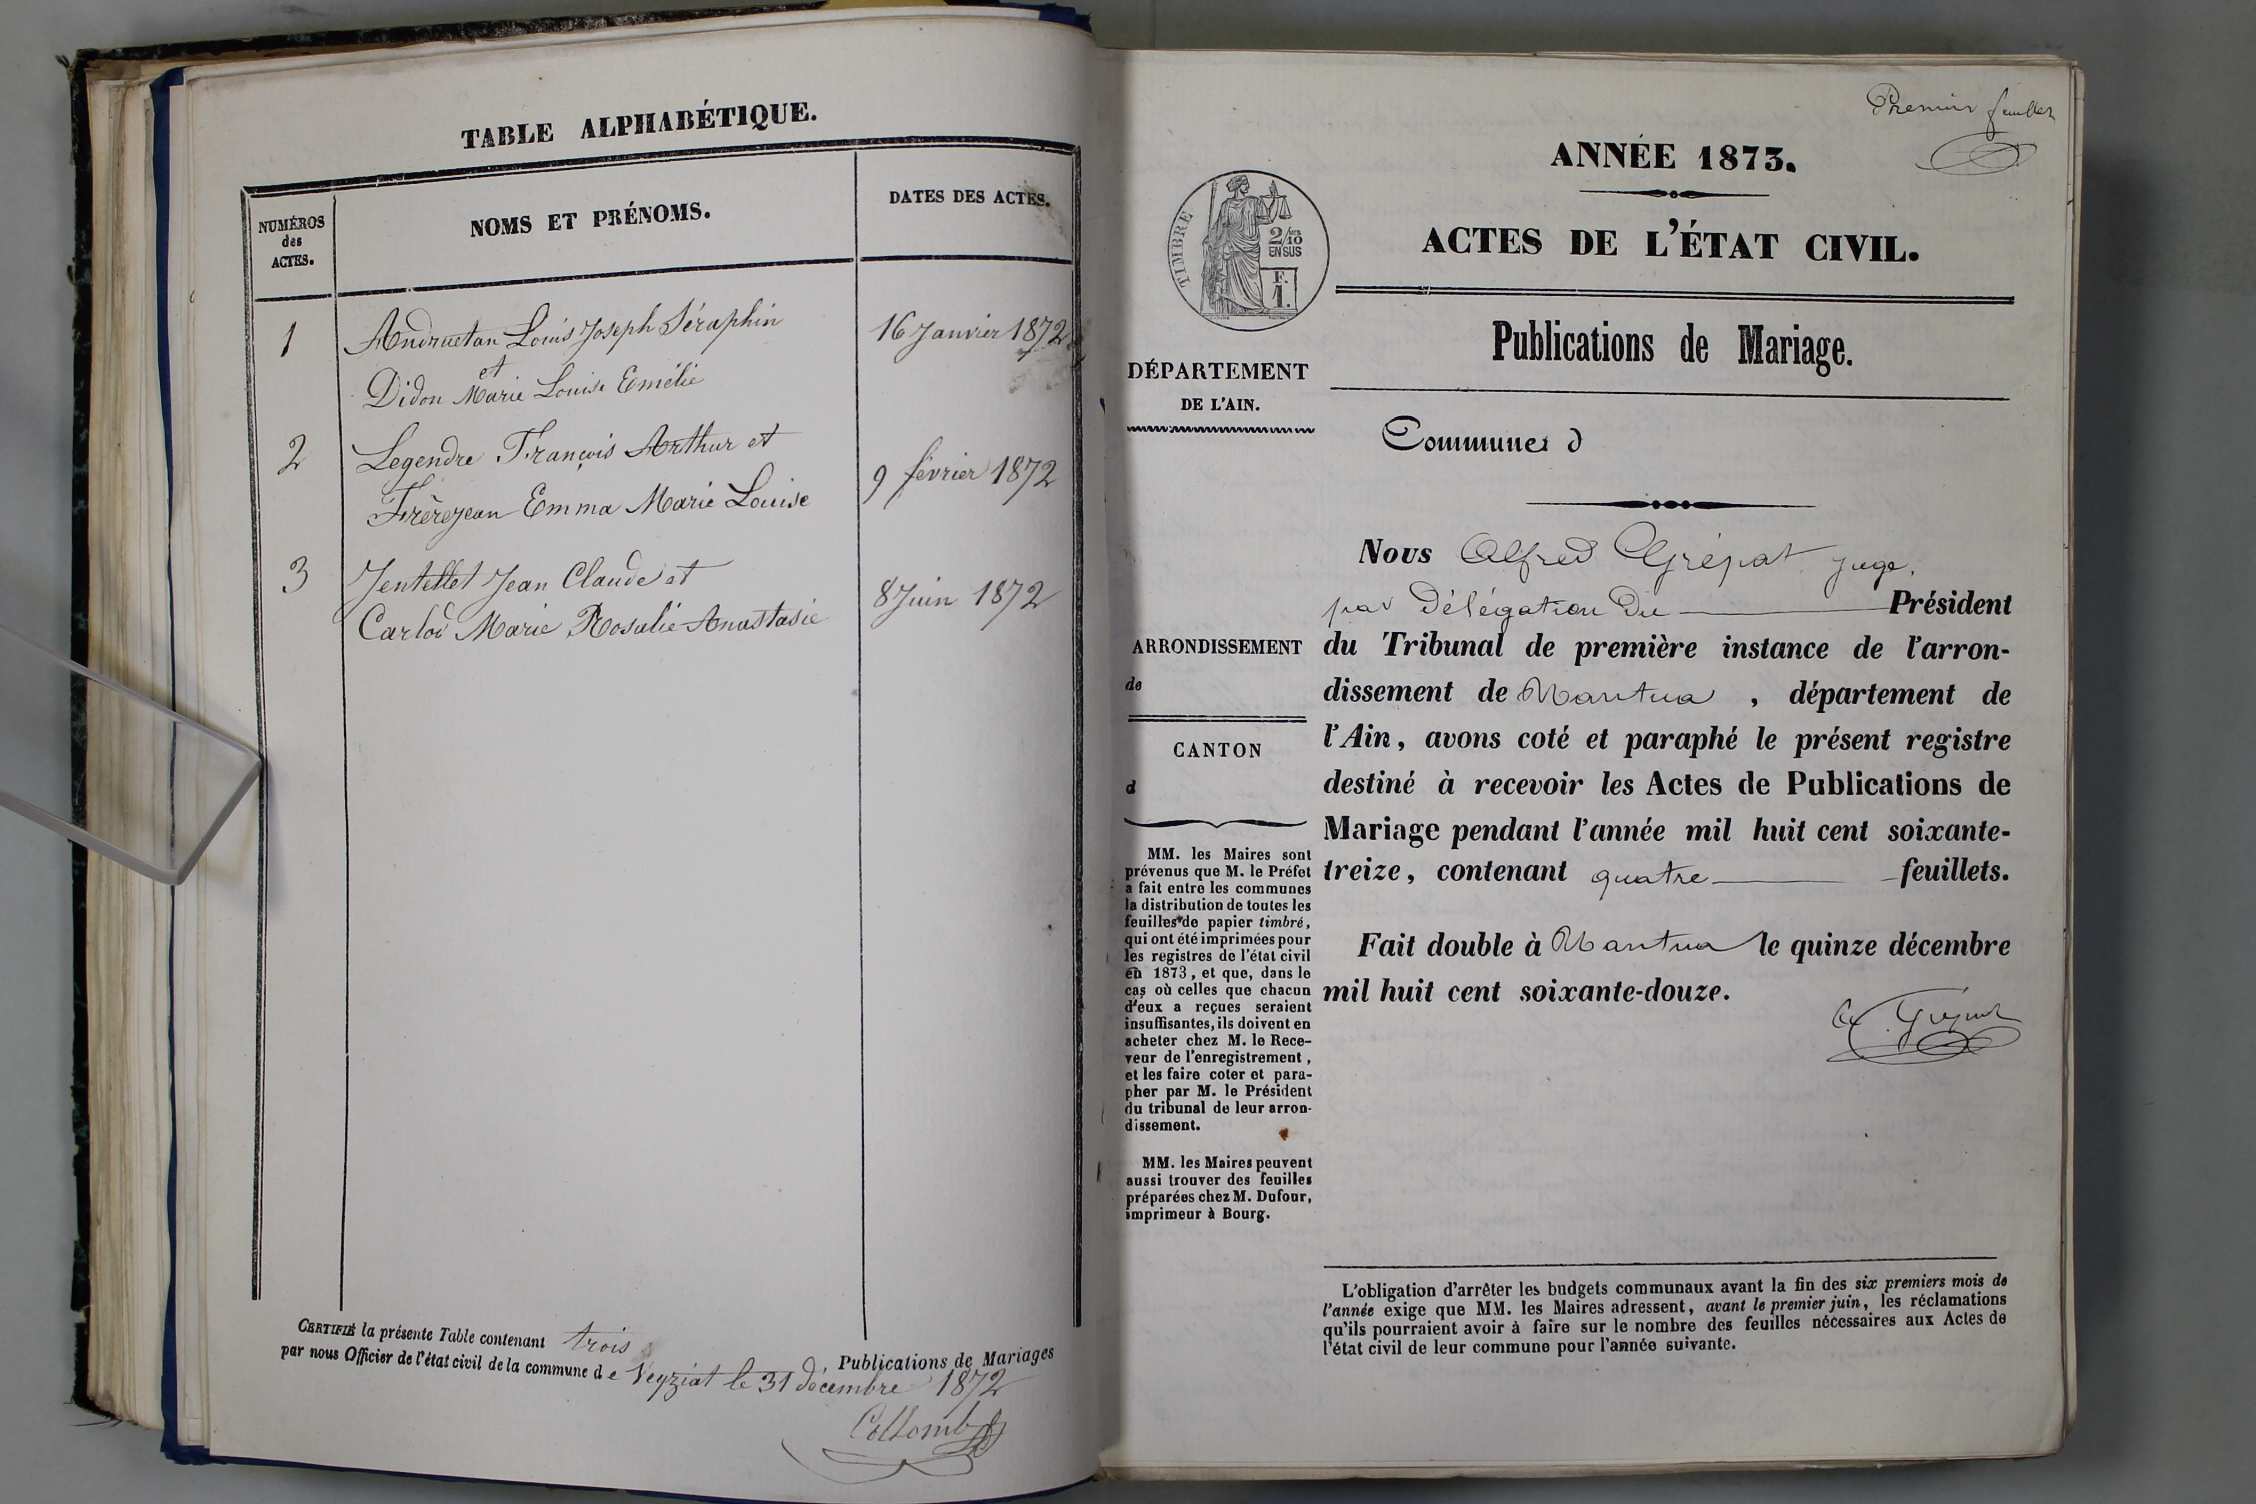 TABLE ALPHABÉTIQUE.
NUMÉROS
des
ACTES.
NOMS ET PRÉNOMS.
DATES DES ACTES.
1
Andruetan Louis Joseph Séraphin
16 Janvier 1872
et
Didon Marie Louise Emélie
2
Legendre François Arthur et
9 février 1872
Frèrejean Emma Marie Louise
3
Jentellet Jean Claude et
8 Juin 1872
Carlod Marie Rosalie Anastasie
CERTIFIÉ la présente Table contenant trois Publications de Mariages
par nous Officier de l'état civil de la commune de Veyziat le 31 décembre 1872
Collomb
Premier feuillet
ANNÉE 1873.
ACTES DE L'ÉTAT CIVIL.
TIMBRE
2/10
EN SUS
F.
1.
Publications de Mariage.
DÉPARTEMENT
DE L'AIN.
Commune d
ARRONDISSEMENT
de
CANTON
d
MM. les Maires sont
prévenus que M. le Préfet
a fait entre les communes
la distribution de toutes les
feuilles de papier timbré,
qui ont été imprimées pour
les registres de l'état civil
en 1873, et que, dans le
cas où celles que chacun
d'eux a reçues seraient
insuffisantes, ils doivent en
acheter chez M. le Rece-
veur de l'enregistrement,
et les faire coter et para-
pher par M. le Président
du tribunal de leur arron-
dissement.
MM. les Maires peuvent
aussi trouver des feuilles
préparées chez M. Dufour,
imprimeur à Bourg.
Nous Alfred Grépat juge,
par délégation du Président
du Tribunal de première instance de l'arron-
dissement de Nantua, département de
l'Ain, avons coté et paraphé le présent registre
destiné à recevoir les Actes de Publications de
Mariage pendant l'année mil huit cent soixante-
treize, contenant quatre feuillets.
Fait double à Nantua le quinze décembre
mil huit cent soixante-douze.
L'obligation d'arrêter les budgets communaux avant la fin des six premiers mois de
l'année exige que MM. les Maires adressent, avant le premier juin, les réclamations
qu'ils pourraient avoir à faire sur le nombre des feuilles nécessaires aux Actes de
l'état civil de leur commune pour l'année suivante.